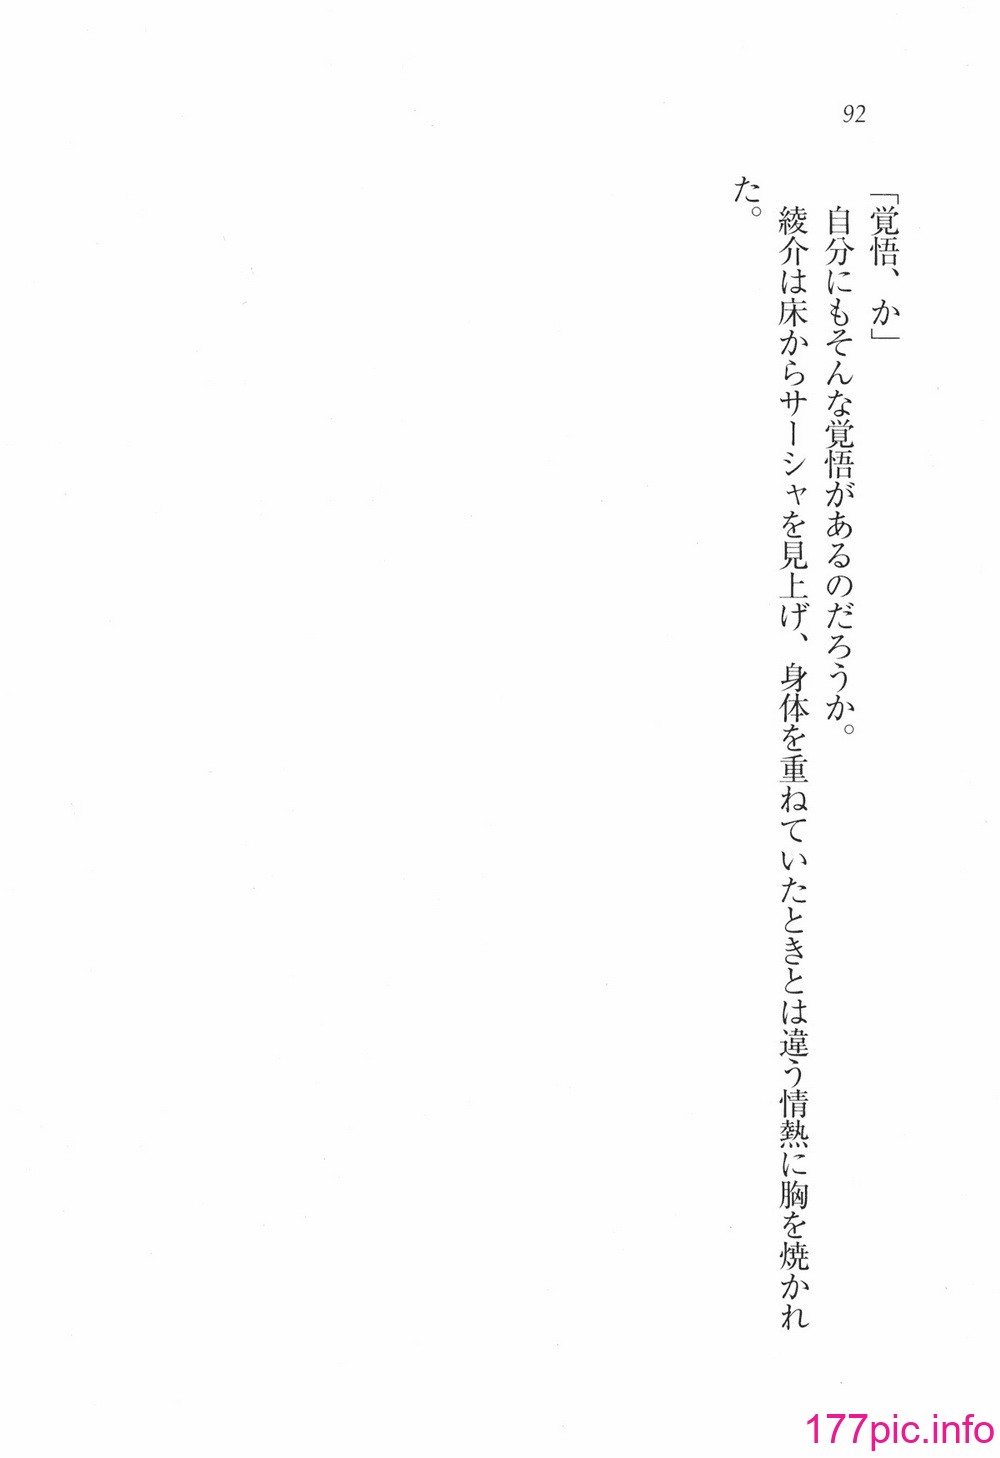 92
「覚悟、か」
自分にもそんな覚悟があるのだろうか。
綾介は床からサーシャを見上げ、身体を重ねていたときとは違う情熱に胸を焼かれ
た。
177pic.info